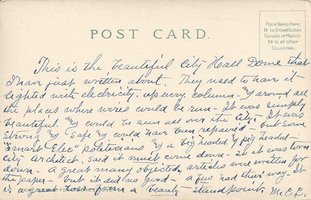 POST CARD.
Place Stamp Here
1¢ to United States
Canada and Mexico
2¢ to all other
Countries.
This is the beautiful City Hall Dome that
I have just written about. They used to have it
lighted with electricity, up every column & around all
the places where wires could be run - It was simply
beautiful & could be seen all over the City. It was
strong & safe & could have been repaired - but some
"Smart Elec" politicians & a big headed & pig headed
City architect, said it must come down - so it was torn
down - a great many objected, articles were written for
the papers - but it did no good - a few had their way. It
is a great loss from a "beauty" standpoint. M.C.R.